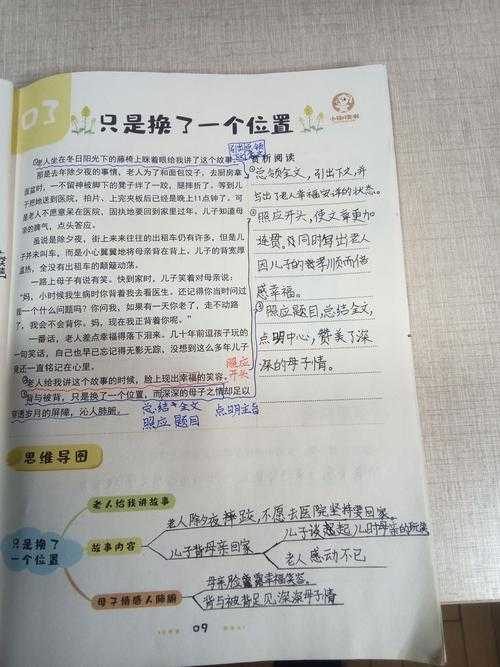 03
只是换了一个位置
①老人坐在冬日阳光下的藤椅上眯着眼给我讲了这个故事。
那是去年除夕夜的事情。老人为了和面包饺子，去厨房拿
面盆时，一不留神被脚下的凳子绊了一跤，腿摔折了。等到儿
子把她送到医院，拍片、上完夹板后已经是晚上11点钟了。可
是老人不愿意呆在医院，固执地要回到家里过年。儿子知道母
亲的脾气，点头答应。
虽说是除夕夜，街上来来往往的出租车仍有许多，但是儿
子并未叫车，而是小心翼翼地将母亲背在背上，儿子的背宽厚
温热，全没有出租车的颠簸动荡。
一路上母子有说有笑。快到家时，儿子笑着对母亲说：
“妈，小时候我生病时你背着我去看医生，还记得你当时问过
我一个什么问题吗？你问我，如果有一天你老了，走不动路
了，我会不会背你。妈，现在我正背着你呢。”
一番话，老人差点幸福得落下泪来。几十年前逗孩子玩的
一句笑话，自己也早已忘记得无影无踪，没想到这么多年儿子
竟还一直铭记在心里。
②老人给我讲这个故事的时候，脸上现出幸福的笑容。
照应
开头
③背与被背，只是换了一个位置，而深深的母子之情却足以
穿透岁月的屏障，沁人肺腑。
总结全文 点明主旨
照应题目
赏析阅读
①总领全文，引出下文，并
写出了老人幸福安详的状态。
②照应开头，使文章更加
连贯，同时写出老人
因儿子的孝顺而倍
感幸福。
③照应题目，总结全文，
点明中心，赞美了深
深的母子情。
思维导图
只是换了
一个位置
老人给我讲故事
故事内容
老人除夕夜摔跤，不愿去医院坚持要回家。
儿子背母亲回家
儿子谈起儿时母亲的玩笑
老人感动不已
母子情感人肺腑
母亲脸露幸福笑容。
背与被背足见深深母子情
09